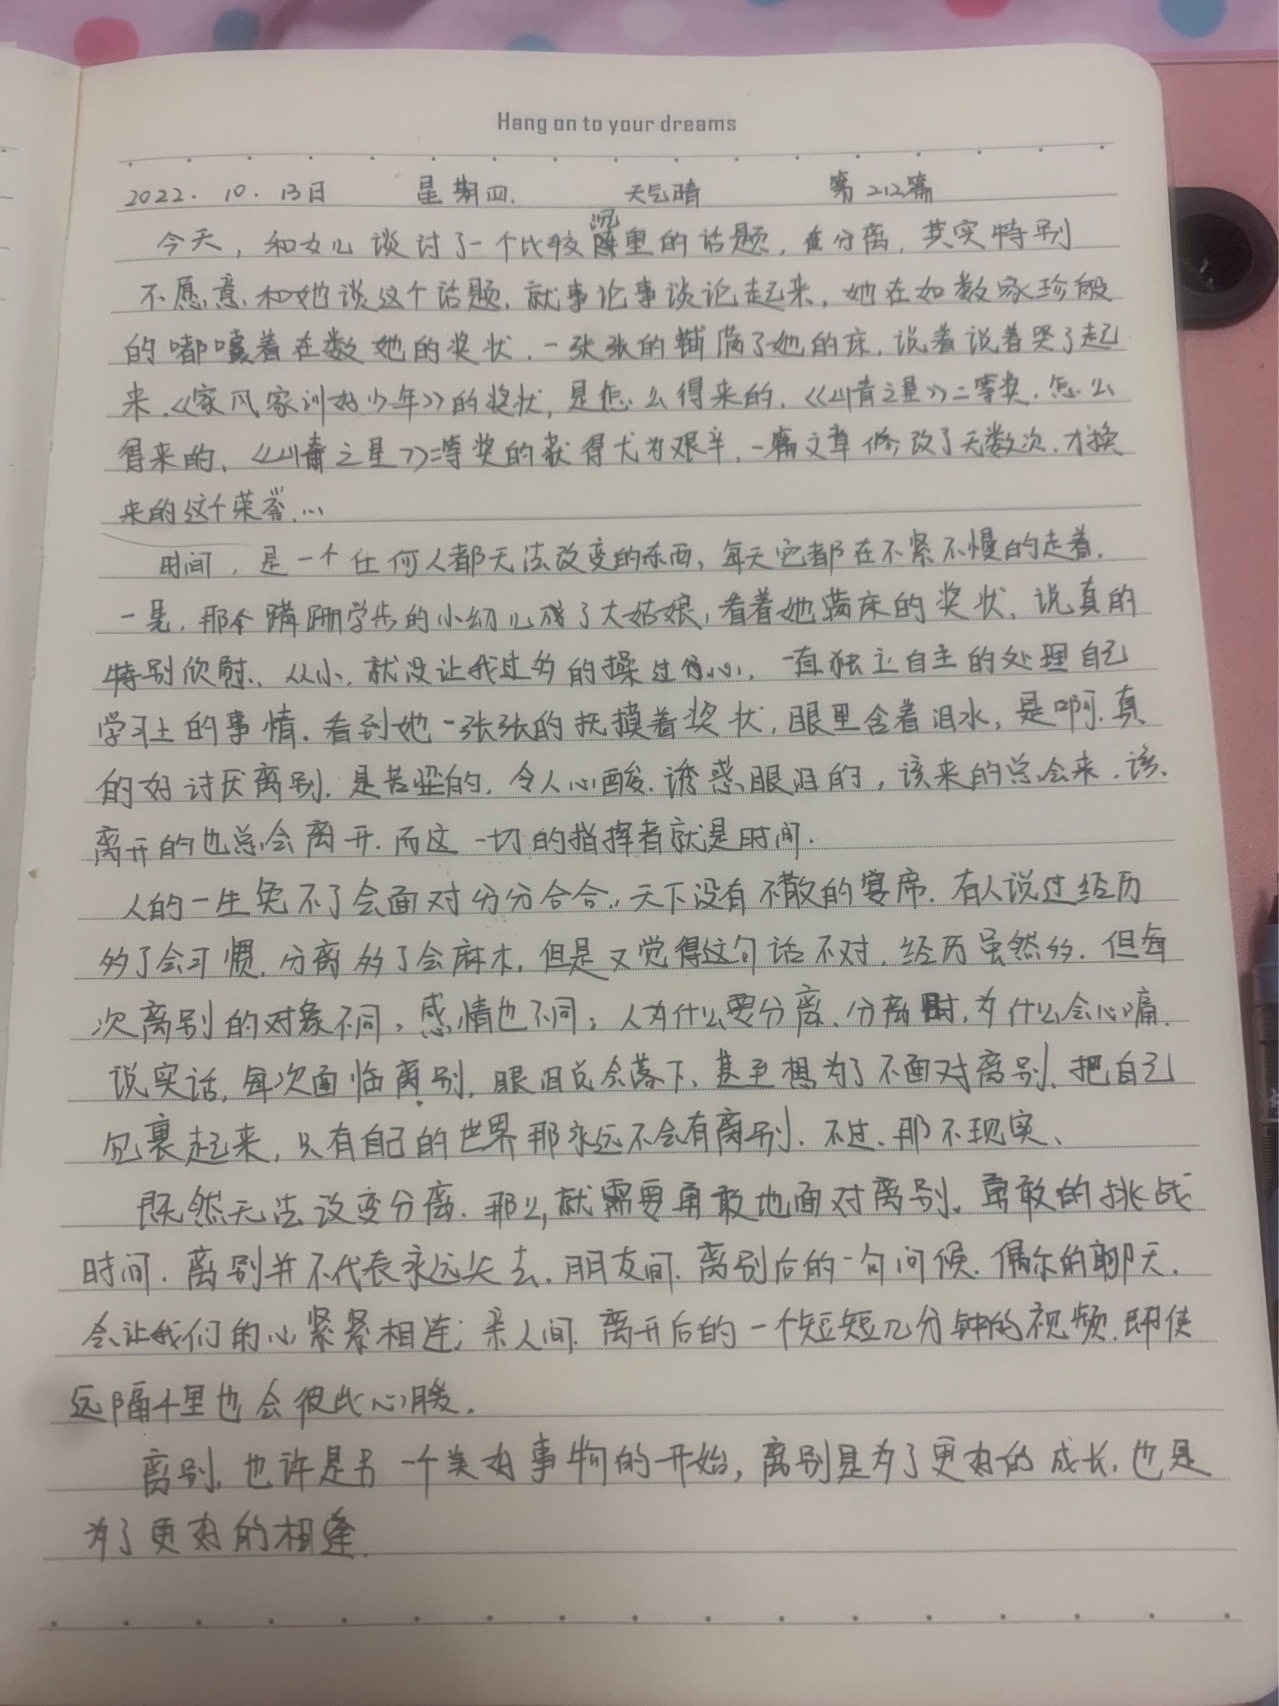 Hang on to your dreams
2022. 10. 13日 星期四. 天气晴 第212篇
今天，和女儿谈讨了一个比较沉重的话题，在分离，其实特别
不愿意和她谈这个话题，就事论事谈论起来，她在如数家珍般
的嘟囔着在数她的奖状，一张张的铺满了她的床，说着说着哭了起
来.《家风家训好少年》的奖状，是怎么得来的，《川青之星》二等奖，怎么
得来的，《川青之星》二等奖的获得尤为艰辛，一篇文章修改了无数次，才换
来的这个荣誉...
时间，是一个任何人都无法改变的东西，每天它都在不紧不慢的走着.
一晃，那个蹒跚学步的小幼儿成了大姑娘，看着她满床的奖状，说真的
特别欣慰，从小，就没让我过多的操过心，一直独立自主的处理自己
学习上的事情，看到她一张张的抚摸着奖状，眼里含着泪水，是啊，真
的好讨厌离别，是苦涩的，令人心酸，诱惑眼泪的，该来的总会来，该
离开的也总会离开，而这一切的指挥者就是时间.
人的一生免不了会面对分分合合，天下没有不散的宴席，有人说过经历
多了会习惯，分离多了会麻木，但是又觉得这句话不对，经历虽然多，但每
次离别的对象不同，感情也不同，人为什么要分离，分离时，为什么会心痛，
说实话，每次面临离别，眼泪总会落下，甚至想为了不面对离别，把自己
包裹起来，只有自己的世界那永远不会有离别，不过，那不现实、
既然无法改变分离，那么，就需要勇敢地面对离别，勇敢的挑战
时间，离别并不代表永远失去，朋友间，离别后的一句问候，偶尔的聊天，
会让我们的心紧紧相连；亲人间，离开后的一个短短几分钟的视频，即使
远隔千里也会彼此心暖.
离别，也许是另一个美好事物的开始，离别是为了更好的成长，也是
为了更好的相逢.